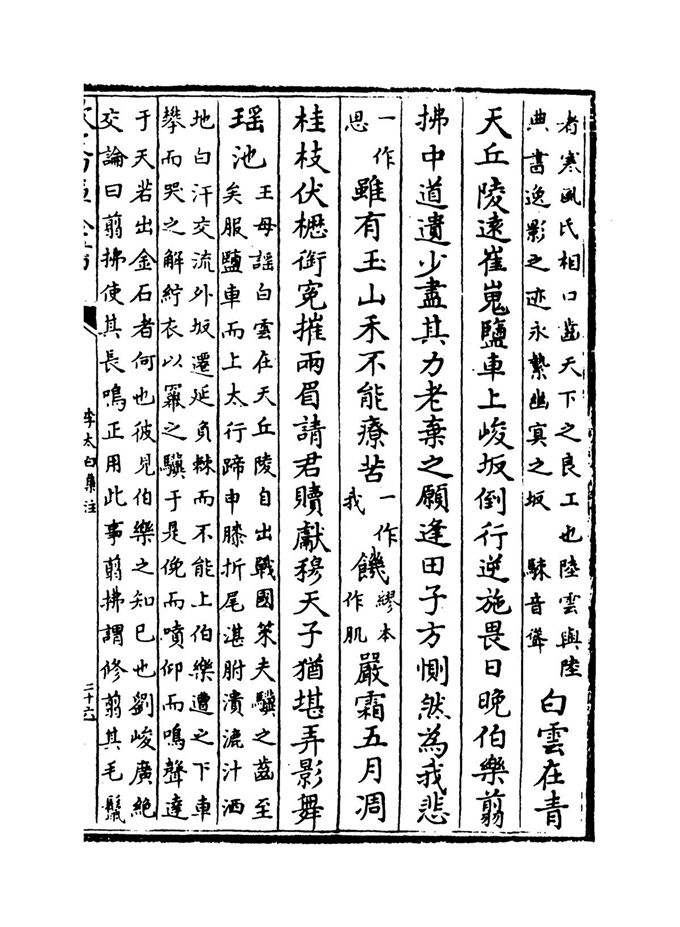 者寒風氏相口齒天下之良工也陸雲與陸
典書逸影之迹永縶幽冥之坂　駷音聳
白雲在青
天丘陵遠崔嵬鹽車上峻坂倒行逆施畏日晚伯樂翦
拂中道遺少盡其力老棄之願逢田子方惻然為我悲
一作
思
雖有玉山禾不能療苦
一作
我
饑
繆本
作肌
嚴霜五月凋
桂枝伏櫪銜寃摧兩眉請君贖獻穆天子猶堪弄影舞
瑶池
王母謡白雲在天丘陵自出戰國策夫驥之齒至
矣服鹽車而上太行蹄申膝折尾湛胕潰漉汁洒
地白汗交流外坂遷延負棘而不能上伯樂遭之下車
攀而哭之解紵衣以羃之驥于是俛而噴仰而鳴聲達
于天若出金石者何也彼見伯樂之知已也劉峻廣絶
交論曰翦拂使其長鳴正用此事翦拂謂修翦其毛鬛
李太白集注
二十六